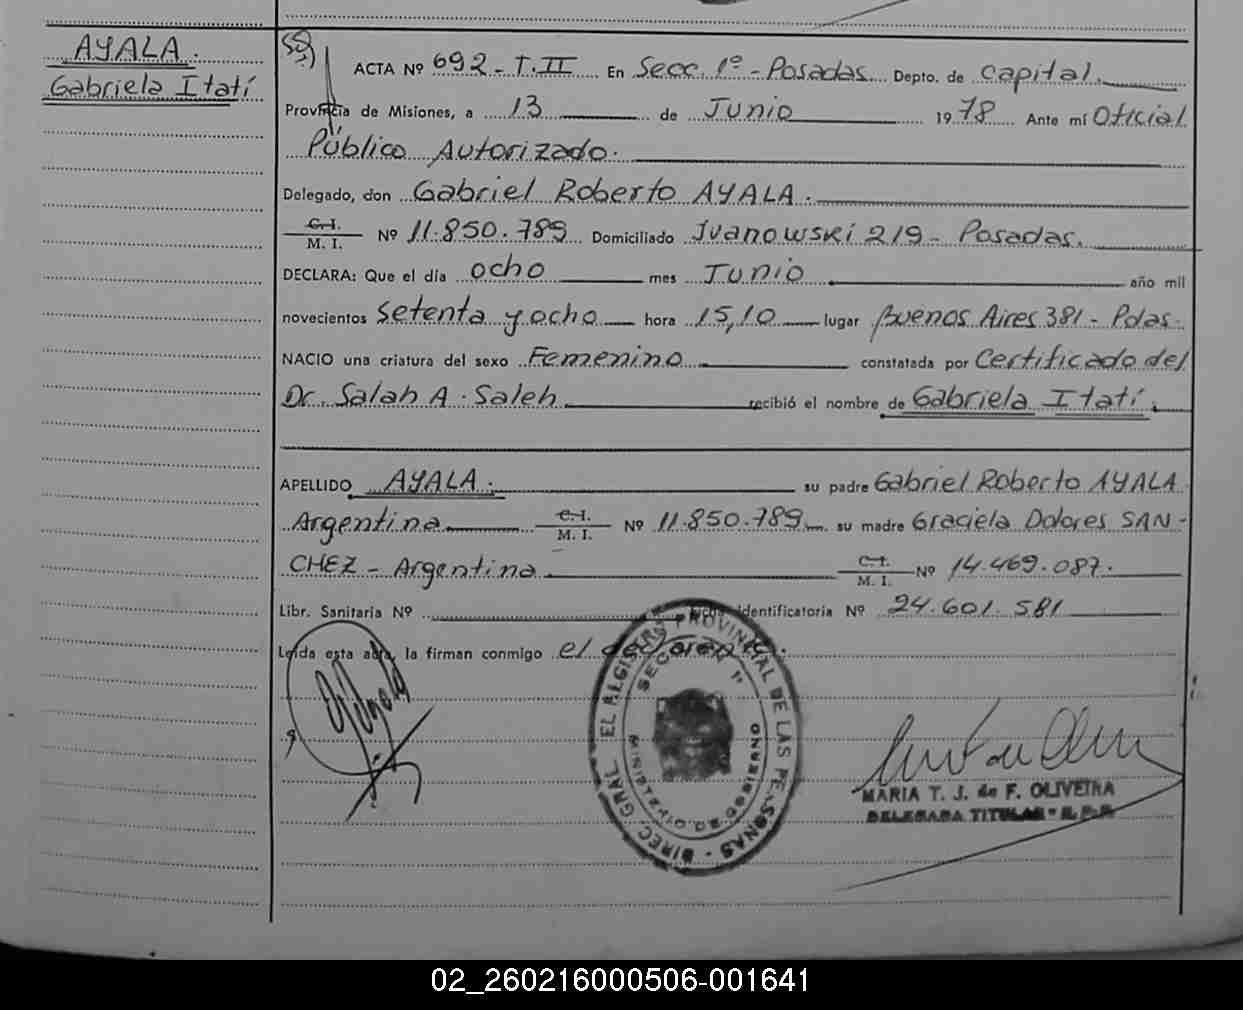 AYALA.
Gabriela Itatí
ACTA Nº 692 - T. II En Secc. 1º - Posadas Depto. de Capital.
Provincia de Misiones, a 13 de Junio 1978 Ante mí Oficial
Público Autorizado.
Delegado, don Gabriel Roberto AYALA.
C. I.
M. I. Nº 11.850.789 Domiciliado Ivanowski 219 - Posadas.
DECLARA: Que el día ocho mes Junio año mil
novecientos setenta y ocho hora 15,10 lugar Buenos Aires 381 - Pdas.
NACIO una criatura del sexo Femenino constatada por Certificado del
Dr. Salah A. Saleh recibió el nombre de Gabriela Itatí.
APELLIDO AYALA. su padre Gabriel Roberto AYALA
Argentina C. I. M. I. Nº 11.850.789 su madre Graciela Dolores SAN-
CHEZ - Argentina C. I. M. I. Nº 14.469.087.
Libr. Sanitaria Nº Ficha identificatoria Nº 24.601.581
Leída esta acta, la firman conmigo el declarante.
DIREC. GRAL. EL REGISTRO PROVINCIAL DE LAS PERSONAS
SECCION 1º
MINISTERIO DE GOBIERNO
MARIA T. J. de F. OLIVEIRA
DELEGADA TITULAR - R.P.P.
02_260216000506-001641